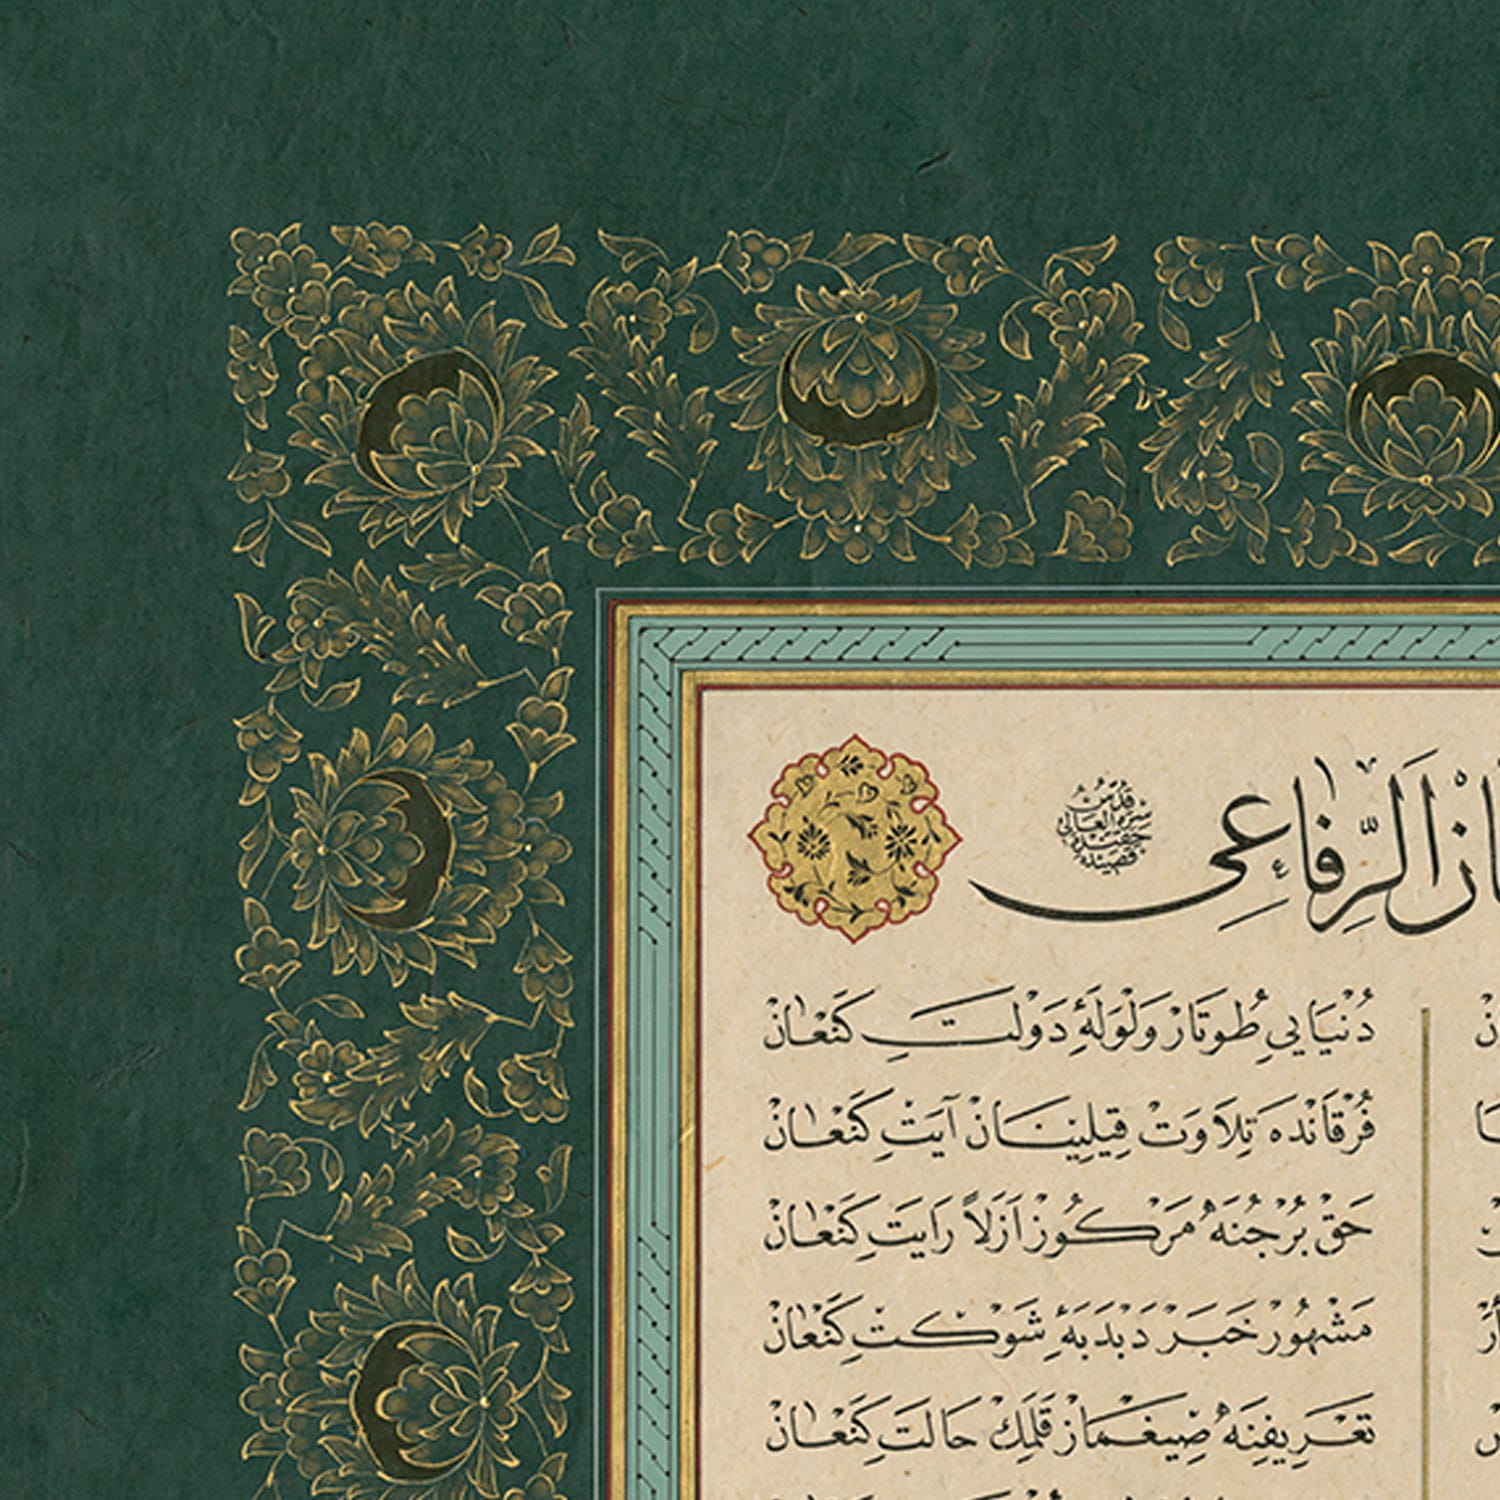 ـاز الرّفاعى
قدّس سرّه العالى حضرتلرينك قصيده
دُنْيَايِى طُوتَارْ وَلْوَلَهٔ دَوْلَتِ كَنْعَانْ
فُرْقَانْدَه تِلَاوَتْ قِيلِينَانْ آيَتِ كَنْعَانْ
حَقْ بُرْجُنَهْ مَرْكُوزْ اَزَلاً رَايَتِ كَنْعَانْ
مَشْهُورْ خَبَرْ دَبْدَبَهٔ شَوْكَتِ كَنْعَانْ
تَعْرِيفِنَهْ صِيغْمَازْ قَلَمِكْ حَالَتِ كَنْعَانْ